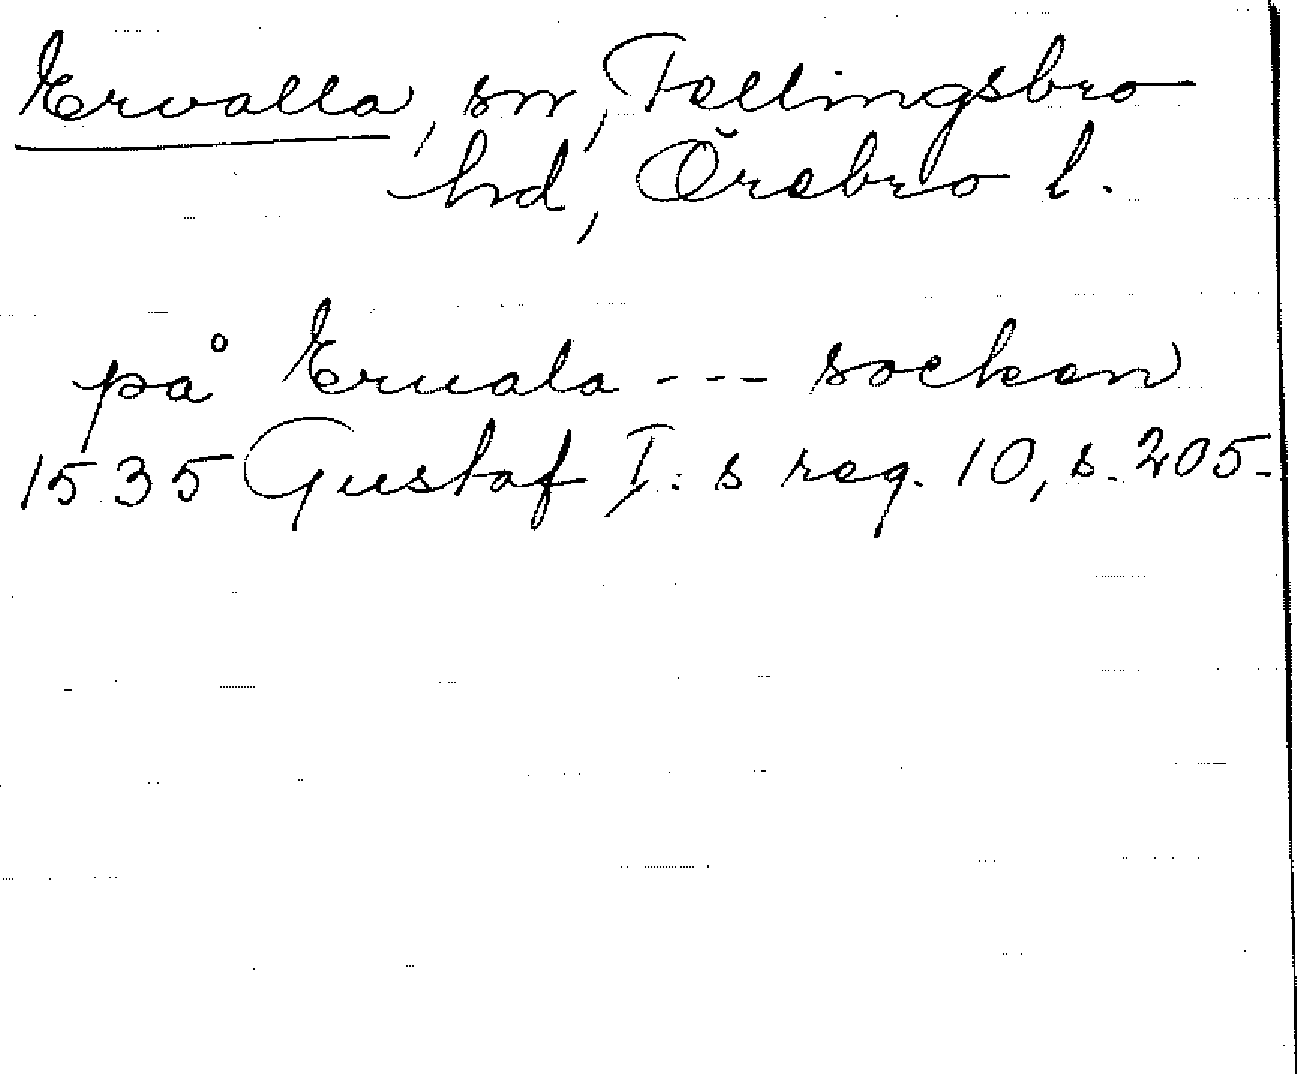 Ervalla, sn, Fellingsbro
hd, Örebro l.
på Eruala --- socken
1535 Gustaf I:s reg. 10, s. 205.